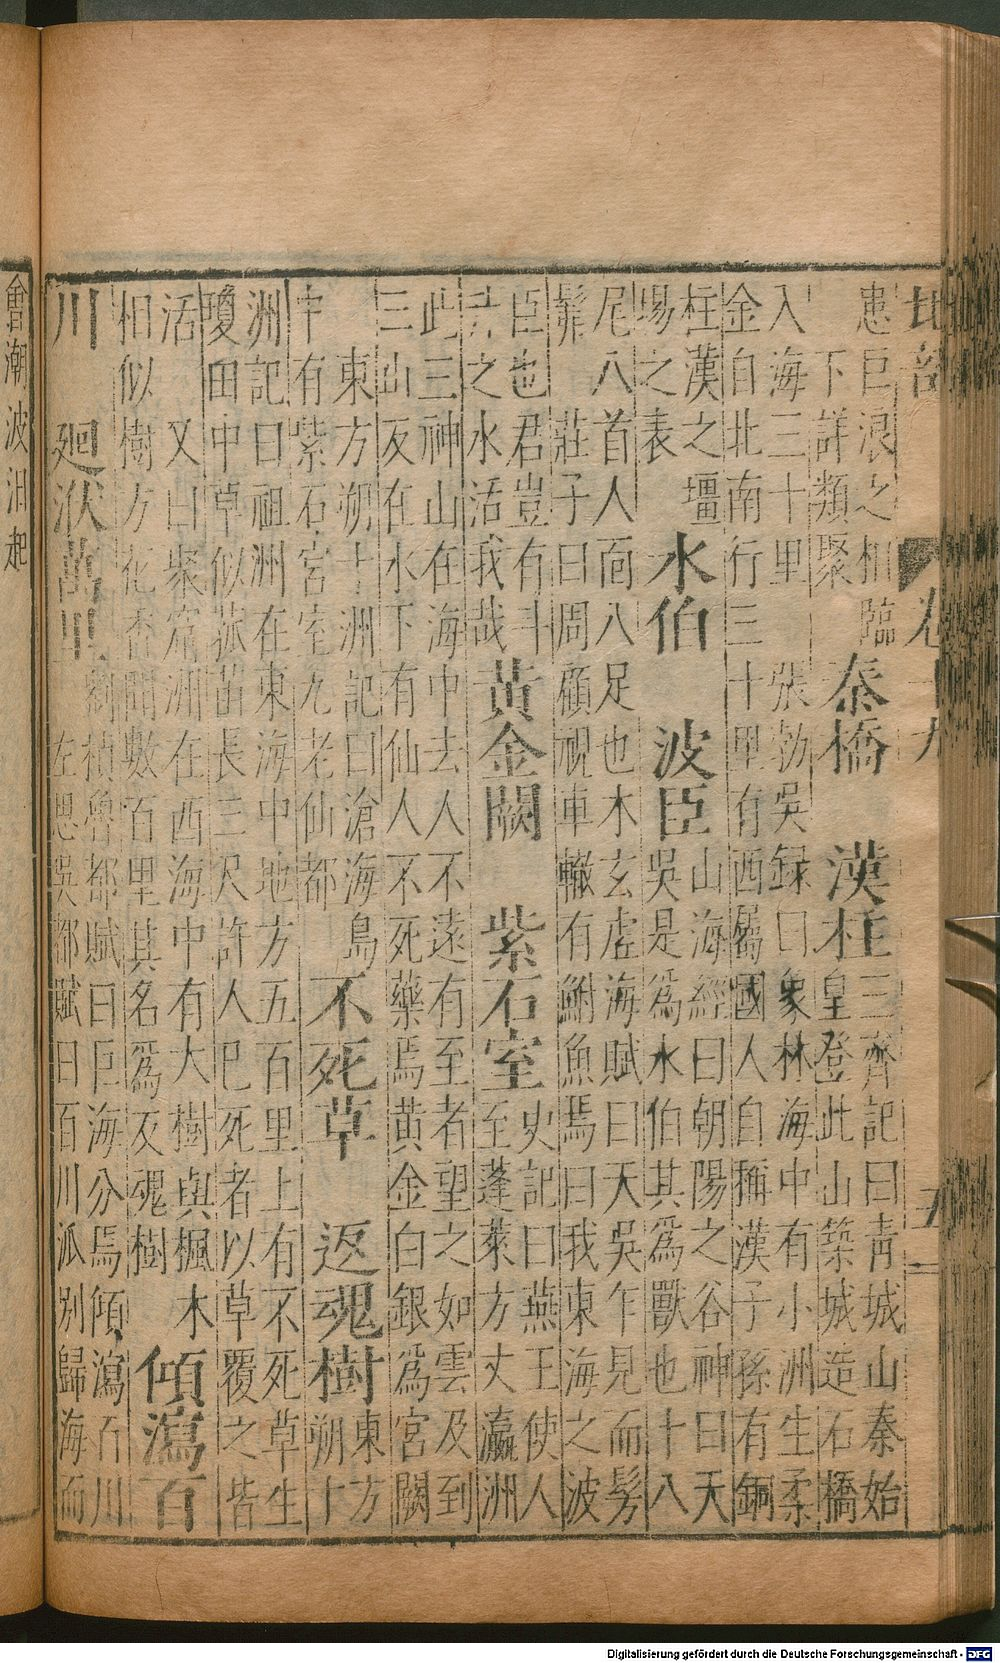 地部 卷十九 五
患巨浪之相臨
下詳類聚
秦橋 漢柱
三齊記曰青城山秦始
皇登此山築城造石橋
入海二十里 張勃吳録曰象林海中有小洲生柔
金自北南行三十里有西屬國人自稱漢子孫有銅
柱漢之壃
場之表
水伯 波臣
山海經曰朝陽之谷神曰天
吳是爲水伯其爲獸也十八
尾八首人面八足也木玄虛海賦曰天吳乍見而髣
髴 莊子曰周顧視車轍有鮒魚焉曰我東海之波
臣也君豈有斗
升之水活我哉
黃金闕 紫石室
史記曰燕王使人
至蓬萊方丈瀛洲
此三神山在海中去人不遠有至者望之如雲及到
三山反在水下有仙人不死藥焉黃金白銀爲宮闕
東方朔十洲記曰滄海島
中有紫石宮室九老仙都
不死草 返魂樹
東方
朔十
洲記曰祖洲在東海中地方五百里上有不死草生
瓊田中草似菰苗長三尺許人已死者以草覆之皆
活 又曰聚窟洲在西海中有大樹與楓木
相似樹方花香聞數百里其名爲反魂樹
傾瀉百
川 廻洑萬里
劉楨魯都賦曰巨海分焉傾瀉百川
左思吳都賦曰百川派別歸海而
會潮波汨起
Digitalisierung gefördert durch die Deutsche Forschungsgemeinschaft - DFG